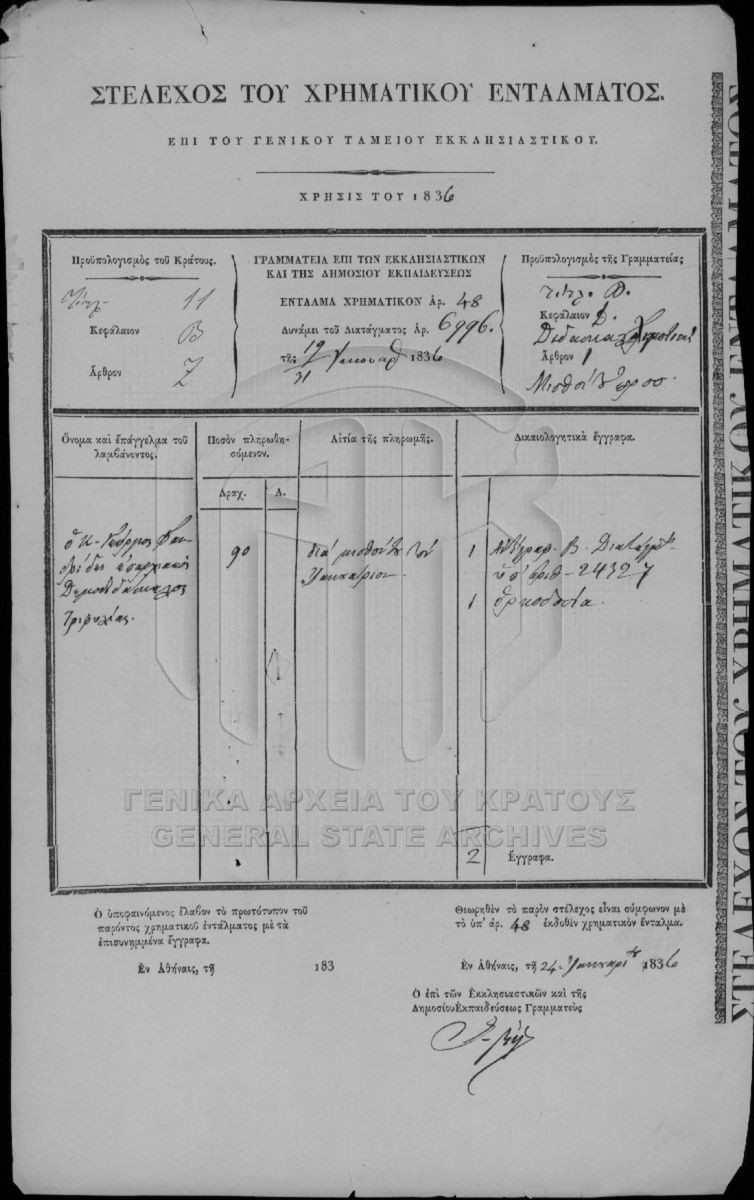 ΣΤΕΛΕΧΟΣ ΤΟΥ ΧΡΗΜΑΤΙΚΟΥ ΕΝΤΑΛΜΑΤΟΣ.
ΕΠΙ ΤΟΥ ΓΕΝΙΚΟΥ ΤΑΜΕΙΟΥ ΕΚΚΛΗΣΙΑΣΤΙΚΟΥ.
ΧΡΗΣΙΣ ΤΟΥ 1836
Προϋπολογισμὸς τοῦ Κράτους.
Τίτλ. 11
Κεφάλαιον Β
Ἄρθρον Ζ
ΓΡΑΜΜΑΤΕΙΑ ΕΠΙ ΤΩΝ ΕΚΚΛΗΣΙΑΣΤΙΚΩΝ
ΚΑΙ ΤΗΣ ΔΗΜΟΣΙΟΥ ΕΚΠΑΙΔΕΥΣΕΩΣ
ΕΝΤΑΛΜΑ ΧΡΗΜΑΤΙΚΟΝ ἀρ. 48
Δυνάμει τοῦ Διατάγματος ἀρ. 6996.
τῆς 19/31 Ἰανουαρ 1836
Προϋπολογισμὸς τῆς Γραμματείας
Τίτλ.
Κεφάλαιον
Ἄρθρον 1
Μισθοὶ
Ὄνομα καὶ ἐπάγγελμα τοῦ
λαμβάνοντος.
Ποσὸν πληρωθη-
σόμενον.
Αἰτία τῆς πληρωμῆς.
Δικαιολογητικὰ ἔγγραφα.
Δραχ. Λ.
ὁ Κ. Γεώργιος
ἐπαρχιακὸς
Δημοδιδάσκαλος
Τριφυλίας.
90
διὰ μισθόν του
Ἰανουάριον.
1 Ἀντίγραφ. Β. Διατάγματ.
ὑπ' ἀριθ. 24327
1 ὁρκοδοσία.
2 Ἔγγραφα.
ΓΕΝΙΚΑ ΑΡΧΕΙΑ ΤΟΥ ΚΡΑΤΟΥΣ
GENERAL STATE ARCHIVES
Ὁ ὑποφαινόμενος ἔλαβον τὸ πρωτότυπον τοῦ
παρόντος χρηματικοῦ ἐντάλματος μὲ τὰ
ἐπισυνημμένα ἔγγραφα.
Ἐν Ἀθήναις, τῇ 183
Θεωρηθὲν τὸ παρὸν στέλεχος εἶναι σύμφωνον μὲ
τὸ ὑπ' ἀρ. 48 ἐκδοθὲν χρηματικὸν ἔνταλμα.
Ἐν Ἀθήναις, τῇ 24 Ἰανουαρίου 1836
Ὁ ἐπὶ τῶν Ἐκκλησιαστικῶν καὶ τῆς
Δημοσίου Ἐκπαιδεύσεως Γραμματεὺς
ΣΤΕΛΕΧΟΣ ΤΟΥ ΧΡΗΜΑΤΙΚΟΥ ΕΝΤΑΛΜΑΤΟΣ